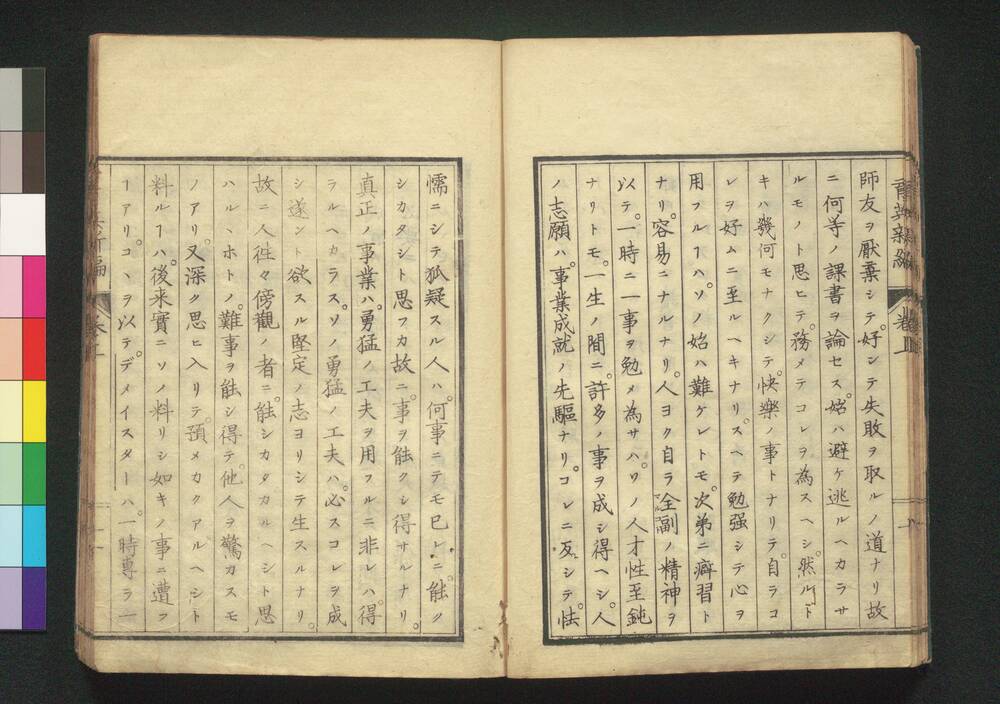 育英新編 卷五
師友ヲ厭棄シテ。好ンテ失敗ヲ取ルノ道ナリ故
ニ何等ノ課書ヲ論セス。姑ハ避ケ逃ルヘカラサ
ルモノト思ヒテ。務メテコレヲ為スヘシ。然ルトキ
キハ幾何モナクシテ。快樂ノ事トナリテ自ラコ
レヲ好ムニ至ルヘキナリ。スヘテ勉强シテ心ヲ
用フルヿハ。ソノ始ハ難ケレトモ。次第ニ癖習ト
ナリ。容易ニナルナリ。人ヨク自ラ全副ノ精神ヲ
以テ。一時ニ一事ヲ勉メ為サハ。ソノ人才性至鈍
ナリトモ。一生ノ間ニ。許多ノ事ヲ成シ得ヘシ。人
ノ志願ハ。事業成就ノ先驅ナリ。コレニ反シテ。怯
懦ニシテ狐疑スル人ハ。何事ニテモ已レニ。能ク
シカタシト思フカ故ニ。事ヲ能クシ得サルナリ。
真正ノ事業ハ。勇猛ノ工夫ヲ用フルニ非レハ。得
ラルヘカラス。ソノ勇猛ノ工夫ハ。必スコレヲ成
シ遂ント欲スル堅定ノ志ヨリシテ生スルナリ。
故ニ人往々傍觀ノ者ニ。能シカタカルヘシト思
ハルヽホトノ。難事ヲ能シ得テ。他人ヲ驚カスモ
ノアリ。又深ク思ヒ入リテ。預メカクアルヘシト
料ルヿハ。後来實ニソノ料リシ如キノ事ニ遭フ
ーアリ。コヽヲ以テ。デメイスターハ。一時專ラ一